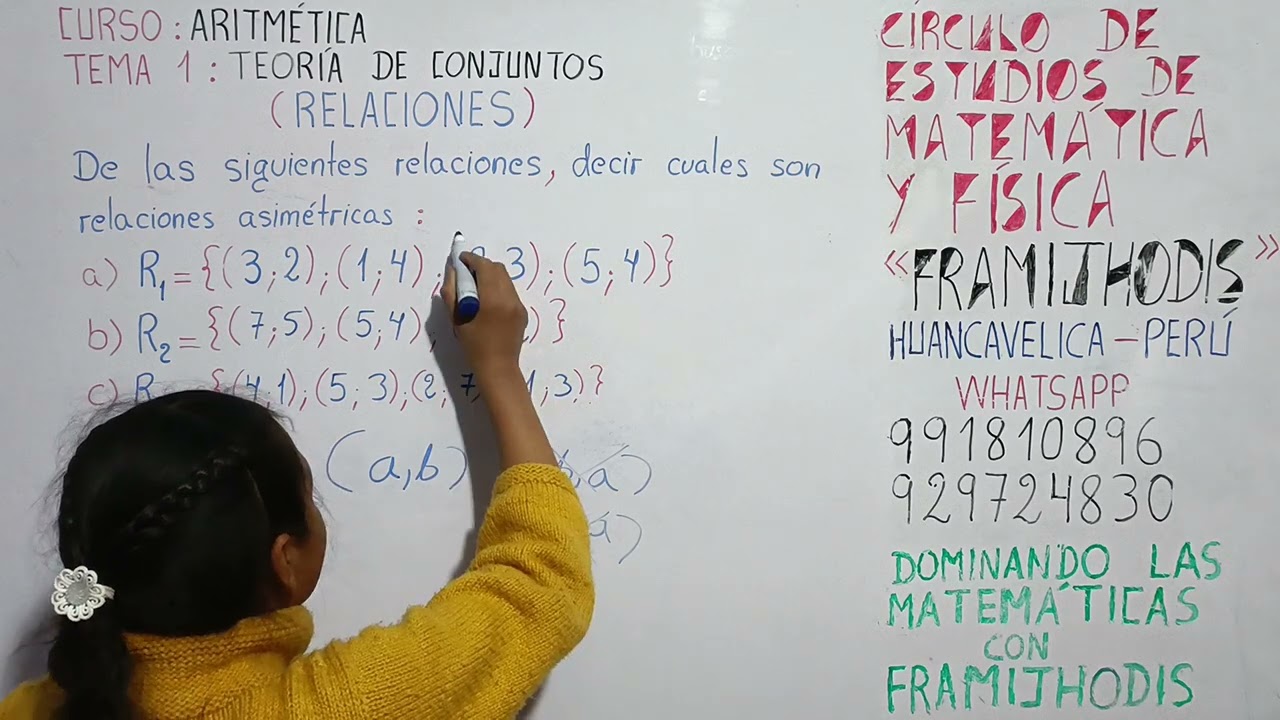 CURSO : ARITMÉTICA
TEMA 1 : TEORÍA DE CONJUNTOS
(RELACIONES)
De las siguientes relaciones, decir cuales son
relaciones asimétricas :
a) R₁ = {(3;2);(1;4); 3);(5;4)}
b) R₂ = {(7;5);(5;4); )}
c) R {(4;1);(5;3);(2;7 1;3)}
(a,b) b,a)
a)
CÍRCULO DE
ESTUDIOS DE
MATEMÁTICA
Y FÍSICA
"FRAMIJHODIS"
HUANCAVELICA – PERÚ
WHATSAPP
991810896
929724830
DOMINANDO LAS
MATEMÁTICAS
CON
FRAMIJHODIS